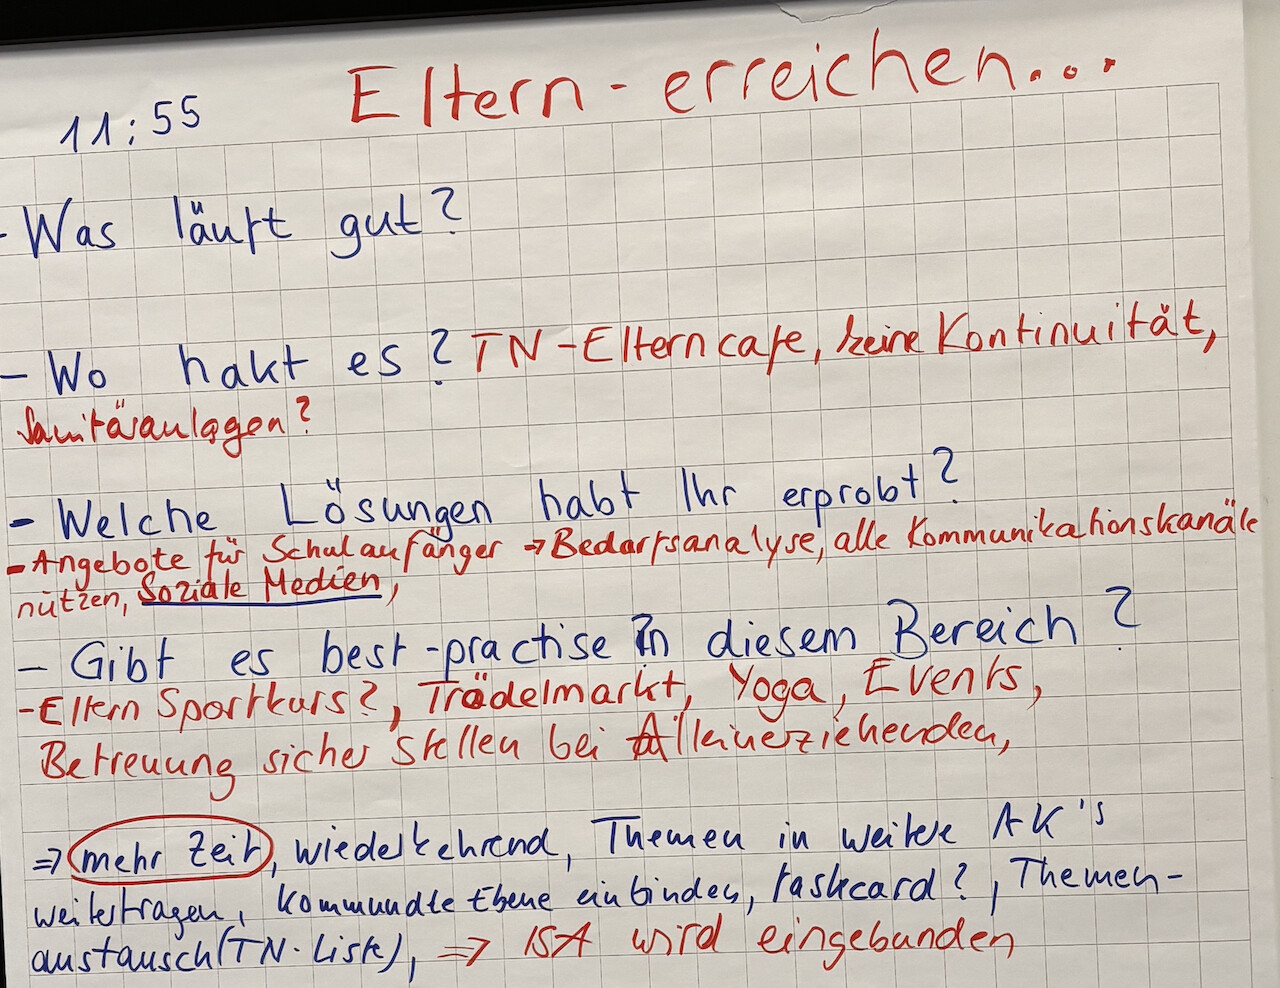 Eltern - erreichen...
11:55
- Was läuft gut?
- Wo hakt es? TN-Elterncafe, keine Kontinuität,
Sanitäranlagen?
- Welche Lösungen habt Ihr erprobt?
- Angebote für Schulanfänger → Bedarfsanalyse, alle Kommunikationskanäle
nutzen, Soziale Medien,
- Gibt es best-practise in diesem Bereich?
- Eltern Sportkurs?, Trödelmarkt, Yoga, Events,
Betreuung sicher stellen bei Alleinerziehenden,
⇒ mehr Zeit, wiederkehrend, Themen in weitere AK's
weitertragen, kommundte Ebene einbinden, taskcard?, Themen-
austausch (TN-Liste), ⇒ ISA wird eingebunden